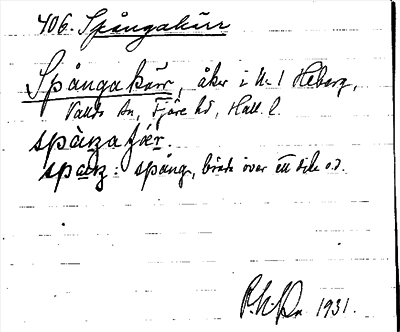 406. Spångakärr
Spångakärr, åker i N:1 Heberg,
Vallda sn, Fjäre hd, Hall. l.
spåŋa ɟær.
spåŋ: spång, bräda över ett dike o.d.
1931.